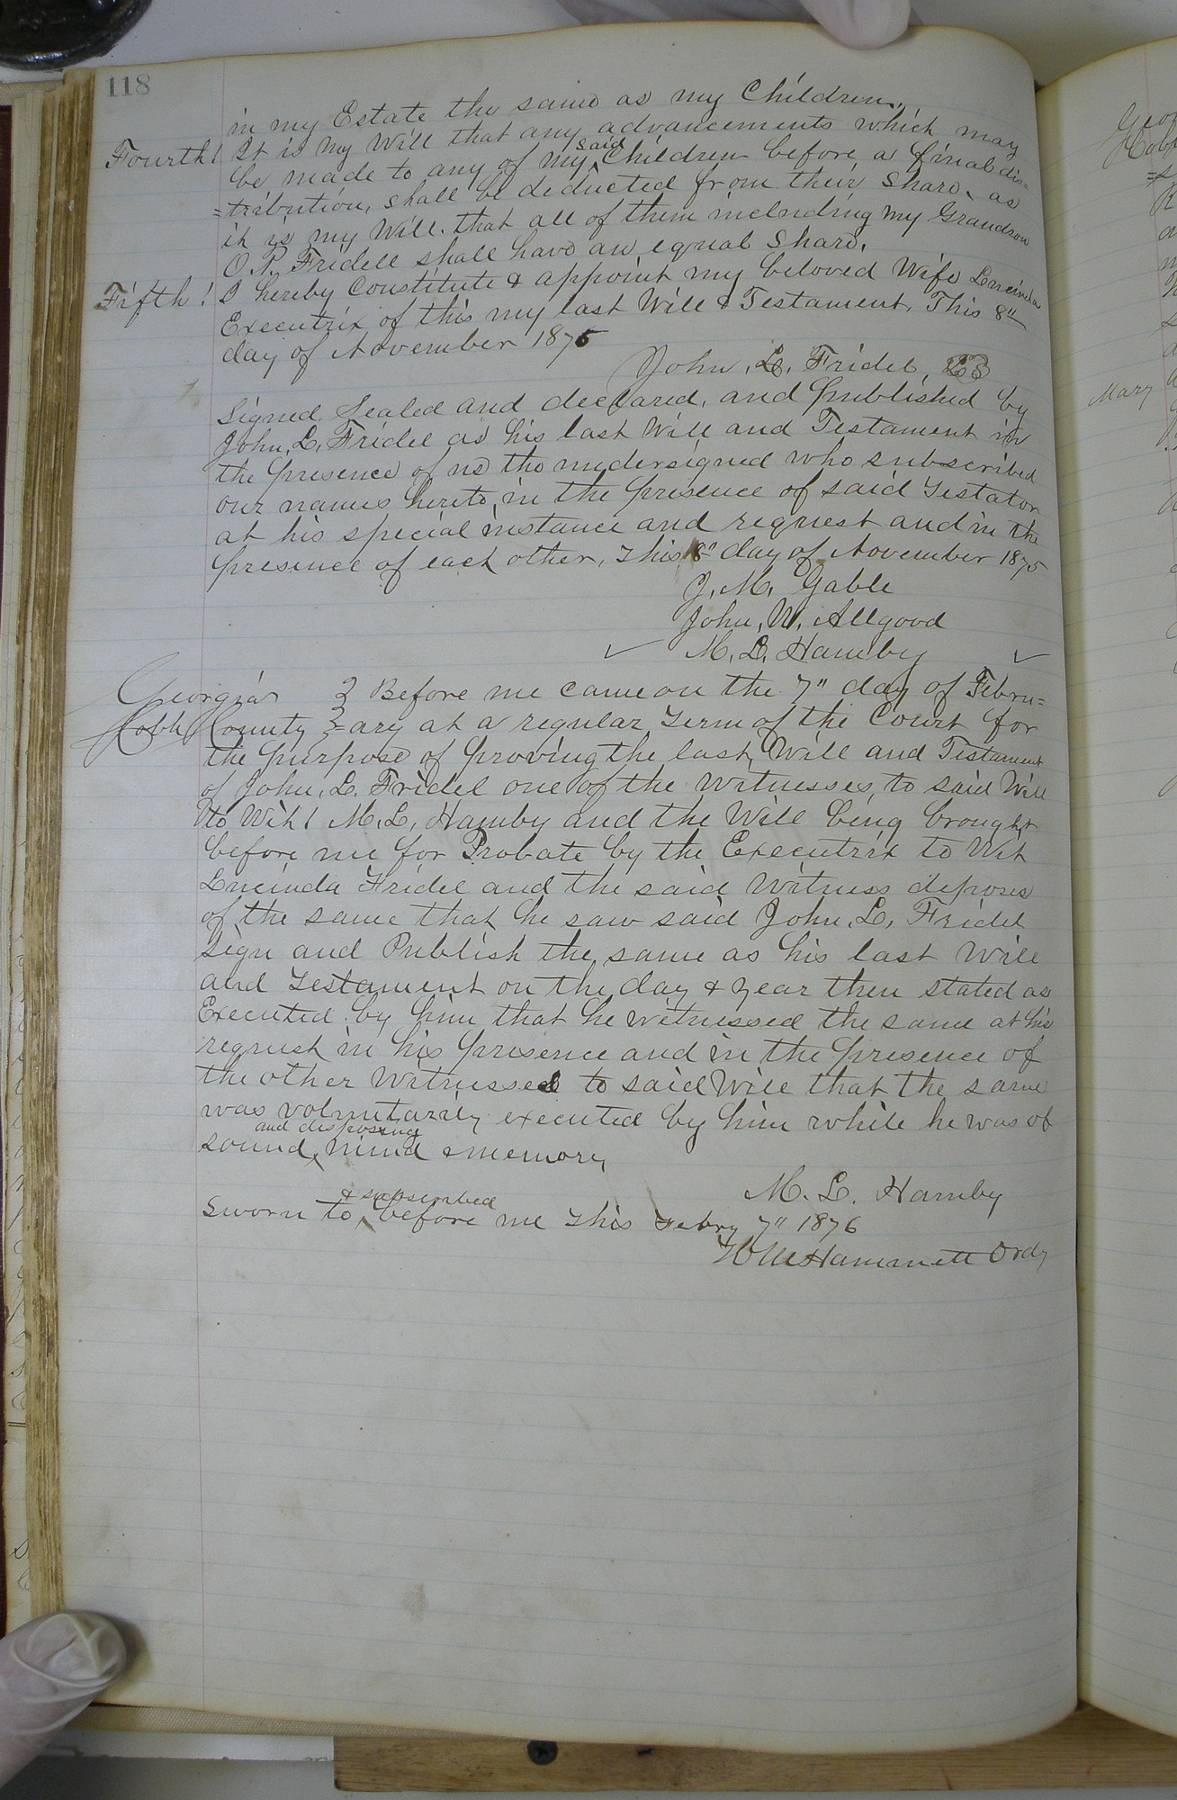 118
in my Estate the same as my Children,
Fourth! It is my Will that any advancements which may
be made to any of my said Children before a final dis=
=tribution, shall be deducted from their Share, as
it is my Will that all of them including my Grandson
O. P. Fridell shall have an equal Share.
Fifth! I hereby Constitute & appoint my beloved Wife Lucinda
Executrix of this my last Will & Testament, This 8th
day of November 1875
John, L. Fridel, LS
Signed Sealed and declared, and published by
John, L, Fridel as his last Will and Testament in
the presence of us the undersigned who subscribed
our names hereto, in the presence of said Testator
at his special instance and request and in the
presence of each other, This 8" day of November 1875
J, M, Gable
John, W, Allgood
M, L, Hamby
Georgia } Before me came on the 7" day of Febru=
Cobb County } =ary at a regular Term of the Court for
the purpose of proving the last, Will and Testament
of John, L. Fridel one of the Witnesses, to said Will
to Wit! M, L, Hamby and the Will being brought
before me for Probate by the Executrix to Wit
Lucinda Fridel and the said Witness deposes
of the same that he saw said John, L, Fridel
sign and Publish the same as his last Will
and Testament on the day & year then stated as
Executed by him that he witnessed the same at his
request in his presence and in the presence of
the other Witnesses to said Will that the same
was voluntarily executed by him while he was of
sound, and disposing mind & memory
M. L. Hamby
Sworn to & subscribed before me This Febry 7" 1876
W M Hammett Ordy
Mary